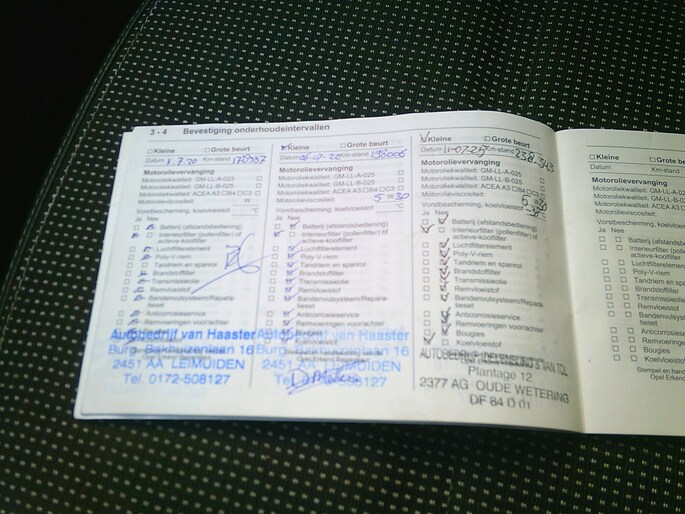 3 - 4 Bevestiging onderhoudsintervallen
Kleine Grote beurt
Datum 1.7.20 Km-stand
Motorolievervanging
Motoroliekwaliteit: GM-LL-A-025
Motoroliekwaliteit: GM-LL-B-025
Motoroliekwaliteit: ACEA A3 C3
Motorolieviscositeit: W
Vorstbescherming, koelvloeistof: °C
Ja Nee
Batterij (afstandsbediening)
Interieurfilter (pollenfilter) of
actieve-koolfilter
Luchtfilterelement
Poly-V-riem
Tandriem en spanrol
Brandstoffilter
Transmissieolie
Remvloeistof
Bandenvulsysteem/Repara-
tieset
Anticorrosieservice
Remvoeringen voor/achter
Autobedrijf van Haaster
16
2451 AA LEIMUIDEN
Tel. 0172-508127
Kleine Grote beurt
Datum Km-stand 198006
Motorolievervanging
Motoroliekwaliteit: GM-LL-A-025
Motoroliekwaliteit: GM-LL-B-025
Motoroliekwaliteit: ACEA A3 C3
Motorolieviscositeit: 5 W 30
Vorstbescherming, koelvloeistof: °C
Ja Nee
Batterij (afstandsbediening)
Interieurfilter (pollenfilter) of
actieve-koolfilter
Luchtfilterelement
Poly-V-riem
Tandriem en spanrol
Brandstoffilter
Transmissieolie
Remvloeistof
Bandenvulsysteem/Repara-
tieset
Anticorrosieservice
Remvoeringen voor/achter
Autobedrijf van Haaster
16
2451 AA LEIMUIDEN
Tel. 0172-508127
Kleine Grote beurt
Datum Km-stand 238.343
Motorolievervanging
Motoroliekwaliteit: GM-LL-A-025
Motoroliekwaliteit: GM-LL-B-025
Motoroliekwaliteit: ACEA A3 C3
Motorolieviscositeit:
Vorstbescherming, koelvloeistof:
Ja Nee
Batterij (afstandsbediening)
Interieurfilter (pollenfilter) of
actieve-koolfilter
Luchtfilterelement
Poly-V-riem
Tandriem en spanrol
Brandstoffilter
Transmissieolie
Remvloeistof
Bandenvulsysteem/Repara-
tieset
Anticorrosieservice
Remvoeringen voor/achter
Bougies
Koelvloeistof
AUTOBEDRIJF VAN TOL
Plantage 12
2377 AG OUDE WETERING
DF 84 D 01
Kleine Grote
Datum Km-stand
Motorolievervanging
Motoroliekwaliteit: GM-LL-A-025
Motoroliekwaliteit: GM-LL-B-025
Motoroliekwaliteit: ACEA A3
Motorolieviscositeit:
Vorstbescherming, koelvloeistof
Ja Nee
Batterij (afstandsbediening)
Interieurfilter (pollenfilter)
actieve-koolfilter
Luchtfilterelement
Poly-V-riem
Tandriem en
Brandstoffilter
Transmissieolie
Remvloeistof
Bandenvulsysteem
tieset
Anticorrosieservice
Remvoeringen
Bougies
Koelvloeistof
Stempel en
Opel